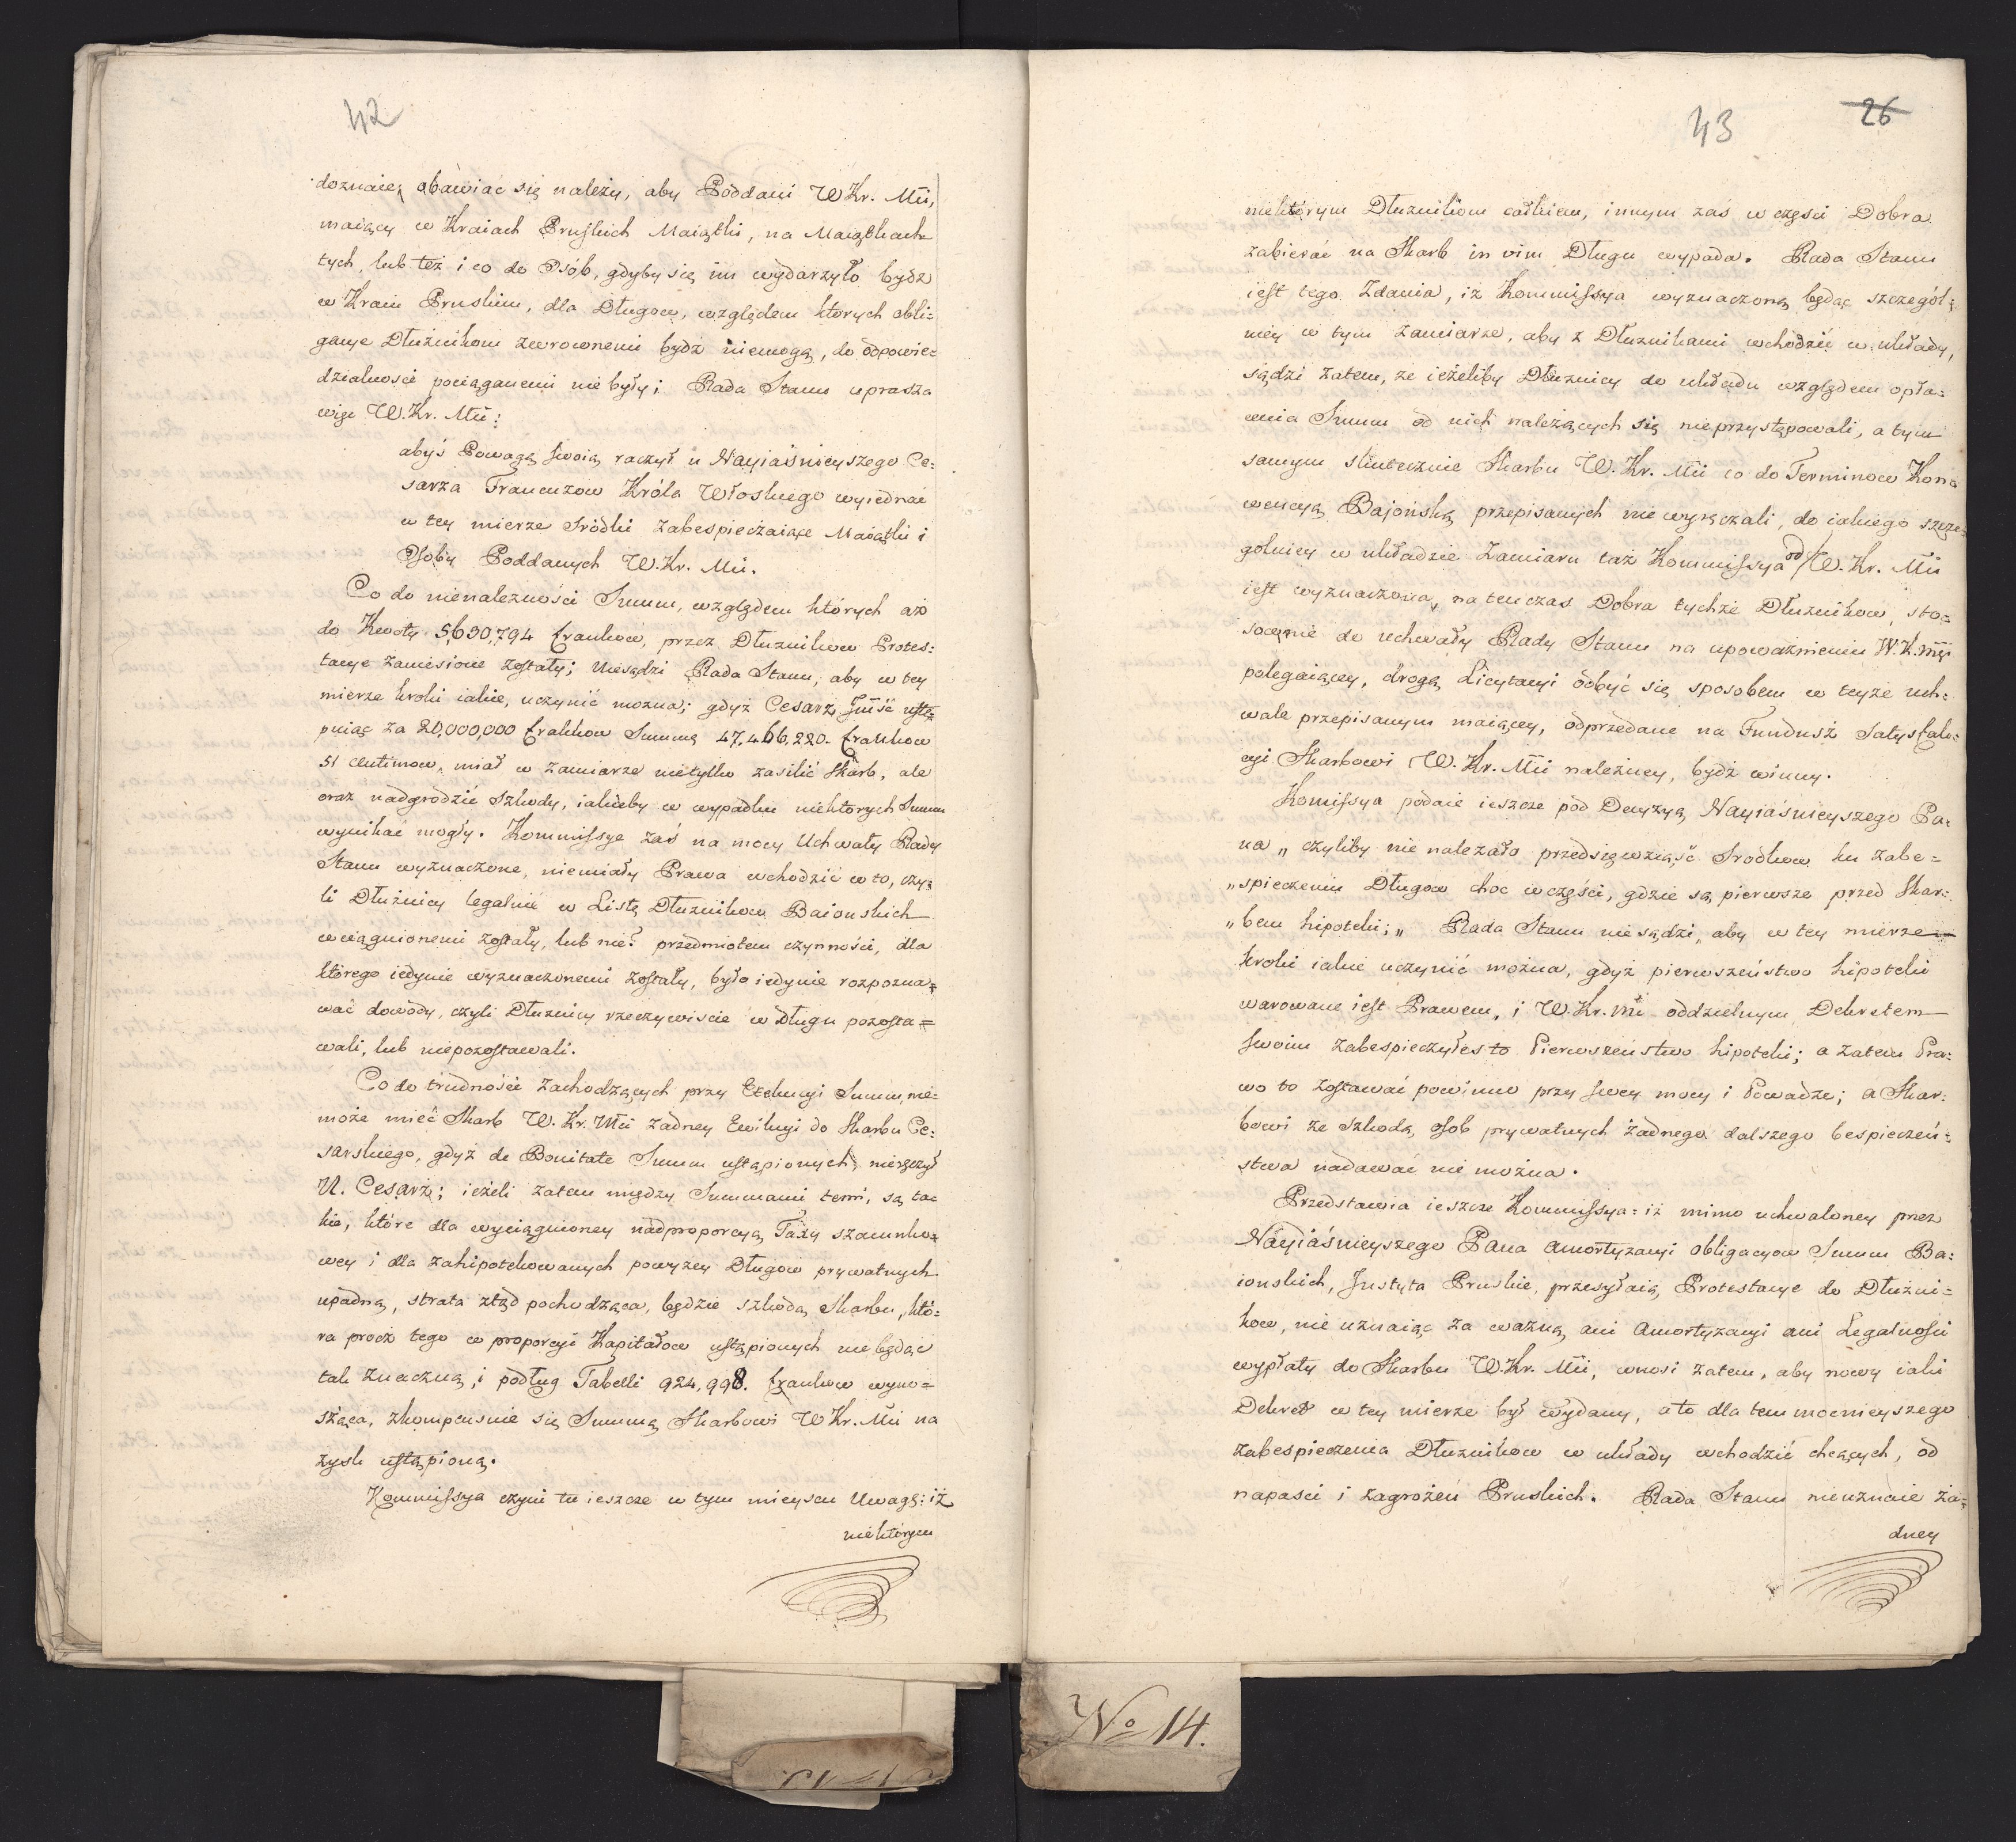 42
doznaie, obawiać się należy, aby Poddani W Kr. Mći,
maiący w Kraiach Pruskich Maiątki, na Maiątkach
tych, lub też i co do Osób, gdyby się im wydarzyło bydź
w Kraiu Pruskim, dla Długow, względem których obli=
gacye Dłużnikom zwroconemi bydź niemogą, do odpowie=
dzialności pociąganemi nie były; Rada Stanu uprasza
więc W. Kr. Mći:
abyś Powagą swoią raczył u Nayiaśnieyszego Ce=
sarza Francuzow Króla Włoskiego wyiednać
w tey mierze śrzodki zabespieczaiące Maiątki i
Osoby Poddanych W. Kr. Mći.
Co do nienależności Summ, względem których aż
do Kwoty 5,630,794 frankow, przez Dłuznikow Protes=
tacye zaniesione zostały; niesądzi Rada Stanu, aby w tey
mierze kroki iakie, uczynić można; gdyż Cesarz Jmść ustę
puiąc za 20,000,000 frankow Summę 47,466,220. frankow
51 centimow, miał w zamiarze nietylko zasilić Skarb, ale
oraz nadgrodzić szkody, iakieby w wypadku niektorych Summ
wynikać mogły. Kommissye zaś na mocy Uchwały Rady
Stanu wyznaczone, niemiały Prawa wchodzić w to, czy=
li Dłużnicy legalnie w Listę Dłuznikow Baionskich
wciągnionemi zostały, lub nie? przedmiotem czynności, dla
którego iedynie wyznaczonemi zostały, było iedynie rozpozna=
wać dowody, czyli Dłuznicy rzeczywiście w Długu pozosta=
wali, lub niepozostawali.
Co do trudności zachodzących przy Exekucyi Summ, nie=
może mieć Skarb W. Kr. Mći żadney Ewikcyi do Skarbu Ce=
sarskiego, gdyż de Bonitate Summ ustąpionych, nieręczył
N. Cesarz; ieżeli zatem między Summami temi, są ta=
kie, które dla wyciągnioney nadproporcyą Taxy szacunko=
wey i dla zahipotekowanych powyżey Długow prywatnych
upadną, strata ztąd pochodząca, będzie szkodą Skarbu, któ=
ra procz tego w proporcyi Kapitałow ustąpionych nie będąc
tak znaczną, i podług Tabelli 924,998. frankow wyno=
sząca, zkompensuie się Summą Skarbowi W Kr. Mći na
zysk ustąpioną.
Kommissya czyni tu ieszcze w tym mieyscu Uwagę: iż
niektórym
43 26
niektórym Dłuznikom całkiem, innym zaś w częsci Dobra
zabierać na Skarb in vim Długu wypada. Rada Stanu
iest tego Zdania, iż Kommissya wyznaczoną będąc szczegól=
niey w tym zamiarze, aby z Dłuznikami wchodzić w układy,
sądzi zatem, że ieżeliby Dłuznicy do układu względem opła=
cenia Summ od nich należących się nieprzystępowali, a tym
samym skutecznie Skarbu W. Kr. Mći co do Terminow Kon=
wencyą Bajońską przepisanych nie wyręczali, do iakiego szcze=
golniey w układzie Zamiaru taż Kommissya od W. Kr. Mći
iest wyznaczona, na ten czas Dobra tychże Dłuznikow, sto=
sownie do uchwały Rady Stanu na upoważnieniu W. K. Mći
polegaiącey, drogą Licytacyi odbyć się sposobem w teyże uch=
wale przepisanym maiącey, odprzedane na Fundusz satysfak=
cyi Skarbowi W. Kr. Mći należney, bydź winny.
Komissya podaie ieszcze pod Decyzyą Nayiaśnieyszego Pa=
na „ czyliby nie należało przedsięwziąść środkow ku zabe=
„spieczeniu Długow choc w części, gdzie są pierwsze przed Skar=
„bem hipoteki; „ Rada Stanu nie sądzi, aby w tey mierze
kroki iakie uczynić można, gdyż pierwszeństwo hipoteki
warowane iest Prawem, i W. Kr. Mć oddzielnym Dekretem
swoim zabespieczyłeś to Pierwszeństwo hipoteki; a zatem Pra=
wo to zostawać powinno przy swey mocy i Powadze; a Skar=
bowi ze szkodą osob prywatnych żadnego dalszego bespieczeń=
stwa nadawać nie można.
Przedstawia ieszcze Kommissya: iż mimo uchwaloney przez
Nayiaśnieyszego Pana Amortyzacyi obligacyow Summ Ba=
ionskich, Instyta Pruskie, przesyłaią Protestacye do Dłuzni=
kow, nie uznaiąc za ważną ani Amortyzacyi ani Legalności
wypłaty do Skarbu W. Kr. Mći, wnosi zatem, aby nowy iaki
Dekret w tey mierze był wydany, a to dla tem mocnieyszego
zabespieczenia Dłuznikow w układy wchodzić chcących, od
napasci i zagrożeń Pruskich. Rada Stanu nieuznaie ża=
dney
No 14.